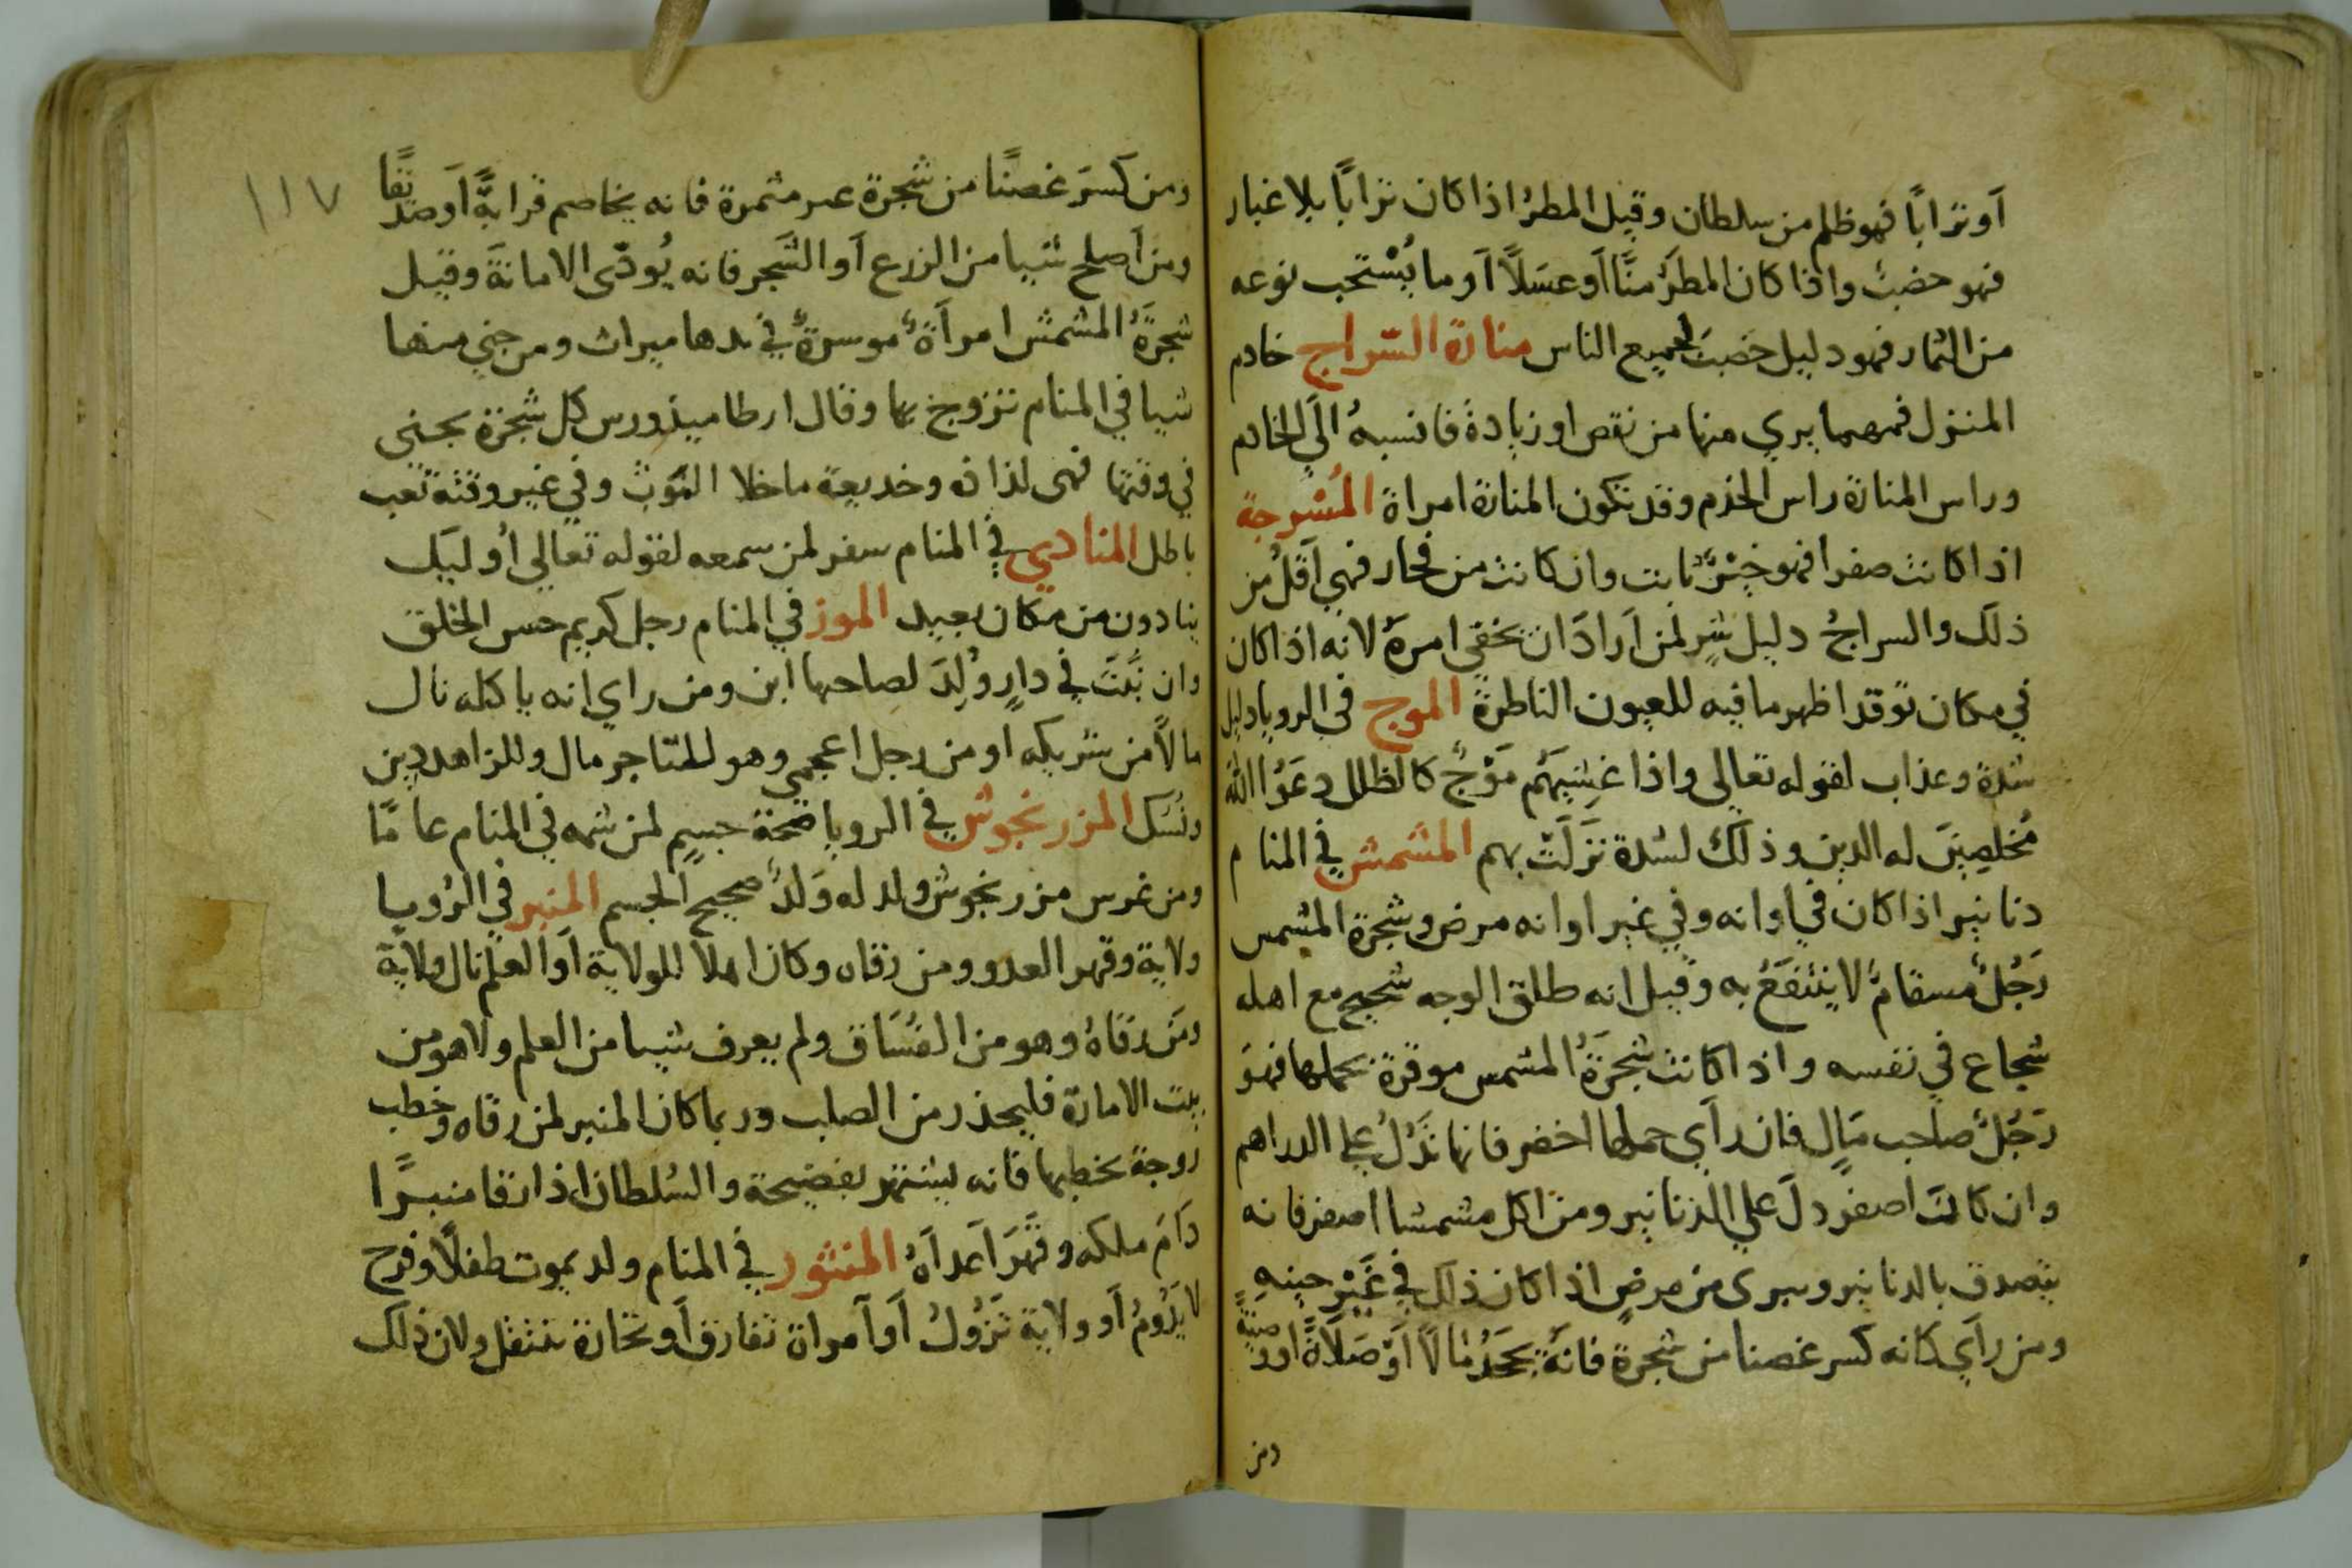 أو ترابًا فهو ظلم من سلطان وقيل المطرُ اذا كان ترابًا بلا غبار
فهو خصبٌ واذا كان المطرُ منًّا أو عسَلاً أو ما يُسْتحب نوعه
من الثمار فهو دليل خصبٍ لجميع الناس منارة السّراج خادم
المنزل فمهما يري منها من نقص او زيادة فانسبهُ الَي الخادم
وراس المنارة راس الخدم وقد تكون المنارة امراة المُسْرجة
اذا كانت صفرا فهو خيْرٌ ثابت وان كانت من فخار فهي أقلُ من
ذلكَ والسراجُ دليل شرٍ لمن أرادَ ان يخفي امرهُ لانه اذا كان
في مكان توقد اظهر ما فيه للعيون الناظرة الموج في الرويا دليل
شدة وعذاب لقوله تعالي واذا غِشيَهُم مَوْجٌ كالظلل دعَوُا اللهَ
مُخلِصِينَ له الدين وذلكَ لشدة نَزلَتْ بهم المشمش في المنام
دنانير اذا كان في اوانه وفي غير اوانه مرض وشجرة المشمس
رَجُلٌ مسقامٌ لا يُنتفَعُ به وقيل انه طلق الوجه شحيح مع اهله
شجاع في نفسه واذا كانت شجرَةُ المشمس موقرة بحملها فهوَ
رَجُلٌ صاحب مَالٍ فان رأي حملها اخضر فانها تَدُلُ علي الدراهم
وان كانت اصفر دلَ علي الدنانير ومن اكل مشمشا اصفر فانه
يتصدق بالدنانير ويبرى من مرضٍ اذا كان ذلك في غَيْرِ حينهِ
ومن رأي كانه كسر غصنا من شجرة فانه يجحَدُ مالاً اَوْ صَلاةً او
ومن
١١٧
ومن كَسرَ غصنًا من شجرة غير مثمرة فانه يخاصم قرابةً أو صديقًا
ومن أصلح شيا من الزرع أو الشجر فانه يُودّى الامانَةَ وقيل
شجرَةُ المشمش امرأةٌ موسرةٌ في يدها ميراث ومن جني منها
شيا في المنام تزوج بها وقال ارطاميدورس كل شجرة يجنى
في وقتها فهي لذاذه وخديعة ما خلا التوت وفي غير وقته تعب
باطل المنادي في المنام سفر لمن سمعه لقوله تعالي أُوليَك
ينادون من مكان بعيد الموز في المنام رجل كريم حسن الخلق
وان نبَتَ في دارٍ وُلِدَ لصاحبها ابن ومن راي انه ياكله نال
مالاً من شريكه او من رجل اعجمي وهو للتاجر مال وللزاهد دين
ونُسَك المزرنجوش في الرويا صحة جسمٍ لمن شمه في المنام عامًا
ومن غرس مزرنجوش ولد له وَلدٌ صحيح الجسم المنبر في الرُويا
ولاية وقهر العدو ومن رقاه وكان اهلا للولاية أو العلم نال ولاية
ومَن رقاهُ وهو من الفسّاق ولم يعرف شيا من العلم ولا هو من
بيت الامارة فليحذر من الصلب وربما كان المنبر لمن رقاه وخطب
زوجة يخطبها فانه يشتهر بفضيحة والسُلطان اذا رقا منبرًا
دَامَ ملكه وقهَرَ أعداهُ المنثور في المنام ولد يموت طفلاً وفرح
لا يَدُومُ أو ولاية تَزُولُ أو امراة تفارق أو تجارة تنتقل ولان ذلك